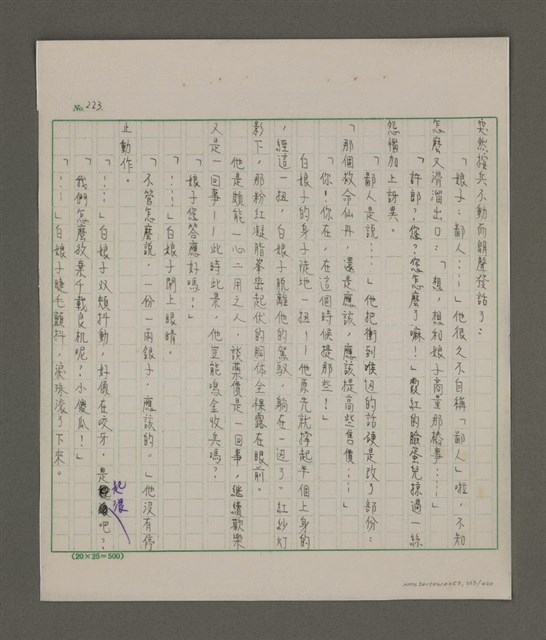 No. 223.
突然按兵不動而朗聲發話了：
「娘子：鄙人⋯⋯」他很久不自稱「鄙人」啦，不知
怎麼又滑溜出口：「想，想和娘子商量那樁事⋯⋯」
「許郎？您？您怎麼了嘛！」霞紅的臉蛋兒掠過一絲
怨懟加上訝異。
「鄙人是說⋯⋯」他把衝到喉邊的話硬是改了部份：
「那個救命仙丹，還是應該，應該提高些售價⋯⋯」
「你！你在，在這個時候提那些！」
白娘子的身子徒地一扭——他原先就撐起半個上身的
，經這一扭，白娘子脫離他的駕馭，躺在一邊了。紅紗灯
影下，那粉紅凝脂峯巒起伏的胴体全裸露在眼前。
他是頗能一心二用之人，談藥價是一回事，繼續歡樂
又是一回事——此時此景，他豈能鳴金收兵嗎？
「娘子您答應好嗎！」
「⋯⋯」白娘子閉上眼睛。
「不管怎麼說，一份一兩銀子，應該的。」他沒有停
止動作。
「⋯⋯」白娘子双頰抖動，好像在咬牙，是 吧？
「我們怎麼放棄千載良机呢？小傻瓜！」
「⋯⋯」白娘子睫毛顫抖，淚珠滚了下來。
(20×25=500)